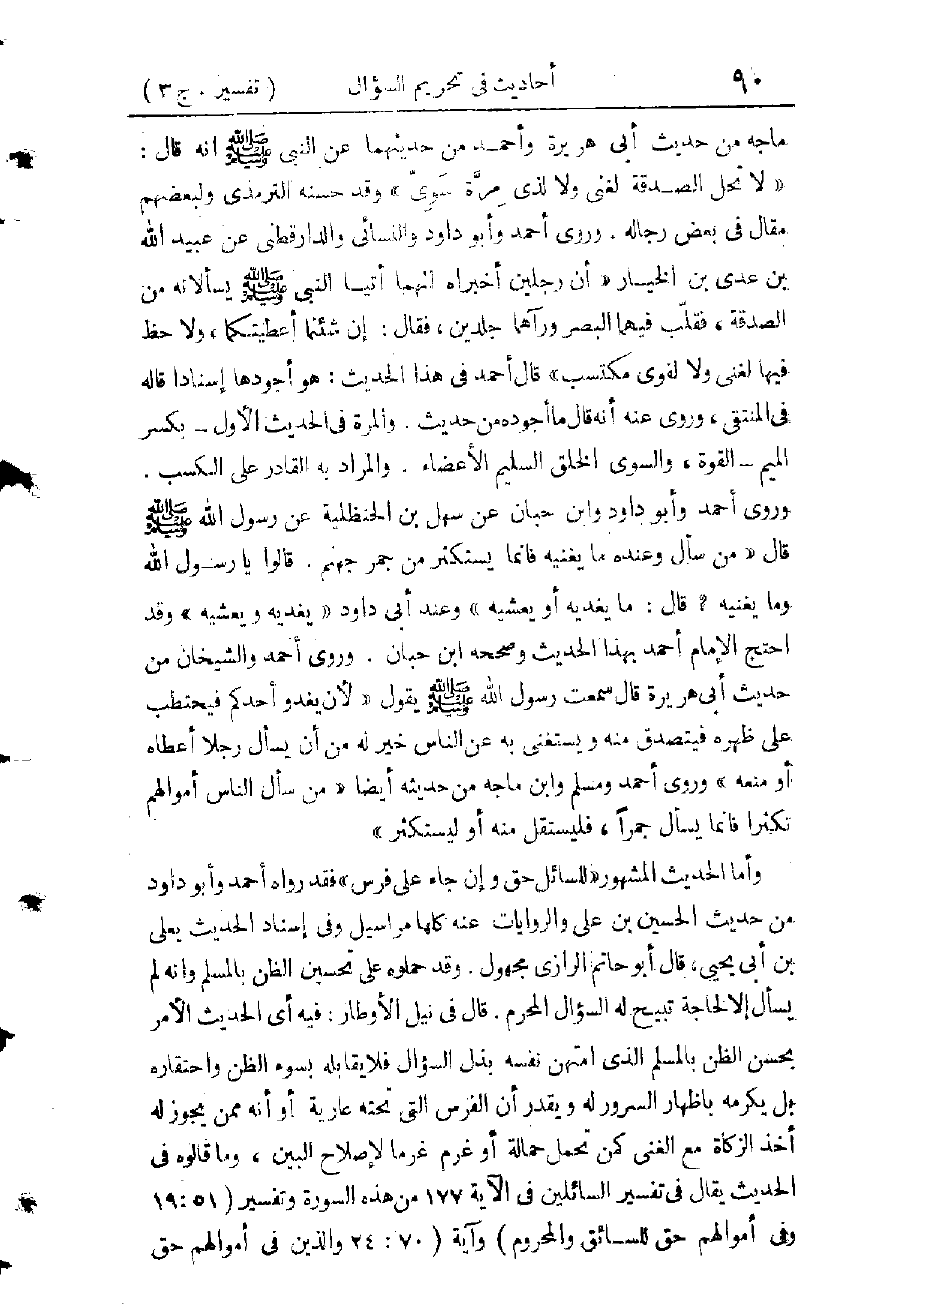 ٩٠ أحاديث فى تحريم السؤال ( تفسير . ج ٣ )
ماجه من حديث أبى هريرة وأحمد من حديثهما عن النبى ﷺ انه قال :
« لا تحل الصدقة لغنى ولا لذى مِرَّة سَوِىّ » وقد حسنه الترمذى ولبعضهم
مقال فى بعض رجاله . وروى أحمد وأبو داود والنسائى والدارقطنى عن عبيد الله
بن عدى بن الخيار « أن رجلين أخبراه انهما أتيا النبى ﷺ يسألانه من
الصدقة ، فقلّب فيهما البصر ورآهما جلدين ، فقال : إن شئتما أعطيتكما ، ولا حظ
فيها لغنى ولا لقوى مكتسب» قال أحمد فى هذا الحديث : هو أجودها إسنادا قاله
فى المنتقى ، وروى عنه أنه قال ما أجوده من حديث . والمرة فى الحديث الأول ــ بكسر
الميم ــ القوة ، والسوى الخلق السليم الأعضاء . والمراد به القادر على الكسب .
وروى أحمد وأبو داود وابن حبان عن سهل بن الحنظلية عن رسول الله ﷺ
قال « من سأل وعنده ما يغنيه فانما يستكثر من جمر جهنم . قالوا يا رسول الله
وما يغنيه ؟ قال : ما يغديه أو يعشيه » وعند أبى داود « يغديه و يعشيه » وقد
احتج الإمام أحمد بهذا الحديث وصححه ابن حبان . وروى أحمد والشيخان من
حديث أبى هريرة قال سمعت رسول الله ﷺ يقول « لأن يغدو أحدكم فيحتطب
على ظهره فيتصدق منه و يستغنى به عن الناس خير له من أن يسأل رجلا أعطاه
أو منعه » وروى أحمد ومسلم وابن ماجه من حديثه أيضا « من سأل الناس أموالهم
تكثرا فانما يسأل جمراً ، فليستقل منه أو ليستكثر »
وأما الحديث المشهور «للسائل حق و إن جاء على فرس» فقد رواه أحمد وأبو داود
من حديث الحسين بن على والروايات عنه كلها مراسيل وفى إسناد الحديث يعلى
بن أبى يحيى، قال أبو حاتم الرازى مجهول . وقد حملوه على تحسين الظن بالمسلم وانه لم
يسأل إلا لحاجة تبيح له السؤال المحرم . قال فى نيل الأوطار : فيه أى الحديث الأمر
بحسن الظن بالمسلم الذى امتهن نفسه بذل السؤال فلا يقابله بسوء الظن واحتقاره
بل يكرمه باظهار السرور له و يقدر أن الفرس التى تحته عارية أو أنه ممن يجوز له
أخذ الزكاة مع الغنى كمن تحمل حمالة أو غرم غرما لإصلاح البين ، وما قالوه فى
الحديث يقال فى تفسير السائلين فى الآية ١٧٧ من هذه السورة وتفسير ( ٥١ : ١٩
وفى أموالهم حق للسائق والمحروم ) وآية ( ٧٠ : ٢٤ والذين فى أموالهم حق